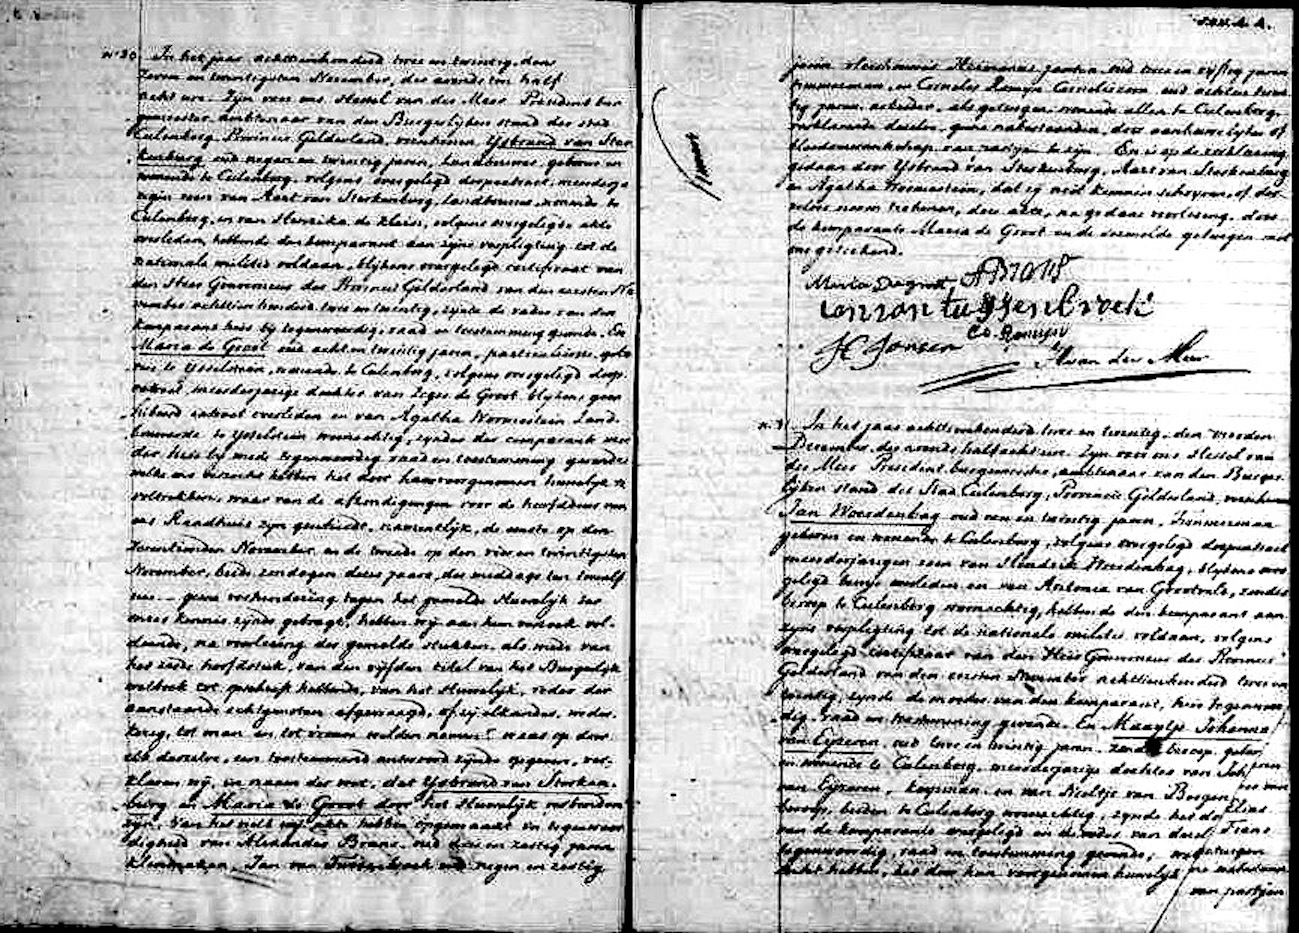 N°30 In het jaar achttienhonderd twee en twintig, den
zeven en twintigsten November, des avonds ten half
acht ure. Zijn voor ons Hessel van der Meer President bur
gemeester, ambtenaar van den Burgerlijken stand der stad
Culenborg, Provincie Gelderland, verschenen Ysbrand van Ster
kenburg oud negen en twintig jaren, landbouwer, geboren en
wonende te Culenborg, volgens overgelegd doopextract, meerderja
rigen zoon van Aart van Sterkenburg, landbouwer, wonende te
Culenborg, en van Henrika de Kleis, volgens overgelegde akte
overleden, hebbende den komparant aan zijne verpligting tot de
nationale militie voldaan, blijkens overgelegd certificaat van
den Heer Gouverneur der Provincie Gelderland van den eersten No
vember achttienhonderd twee en twintig, zijnde de vader van den
komparant hier bij tegenwoordig, raad en toestemming gevende. En
Maria de Groot oud acht en twintig jaren, gebo
ren te Ysselstein, wonende te Culenborg, volgens overgelegd doop
extract, meerderjarige dochter van de Groot, blijkens
extract overleden en van Agatha Wormestein Land
bouwerse te Ysselstein woonachtig, zijnde der comparante moe
der hier bij mede tegenwoordig raad en toestemming gevende
welke ons verzocht hebben het door haar voorgenomen huwelijk te
voltrekken, waar van de afkondigingen voor de hoofddeur van
ons Raadhuis zijn geschied, namentlijk, de eerste op den
zeventienden November, en de tweede op den vier en twintigsten
November, beide zondagen dezes jaars, des middags ten twaalf
ure. geene verhindering tegen het gemelde Huwelijk ter
onzer kennis zijnde gebragt, hebben wij aan hun verzoek vol
doende, na voorlezing der gemelde stukken, als mede van
het zesde hoofdstuk, van den vijfden titel van het Burgerlijk
wetboek tot opschrift hebbende, van het Huwelijk, ieder der
aanstaande echtgenoten afgevraagd, of zij elkander, weder
keerig, tot man en tot vrouw wilden nemen? waar op door
elk derzelve, een toestemmend antwoord zijnde gegeven, ver
klaren wij, in naam der wet, dat Ysbrand van Sterken
burg en Maria de Groot door het Huwelijk verbonden
zijn. Van het welk wij akte hebben opgemaakt in tegenwoor
digheid van Alexander Brans, oud drie en zestig jaren
kleermaker, Jan van Tussenbroek oud negen en zestig
jaren vleeschhouwer Hermanus Jansen oud twee en vijftig jaren
timmerman, en Cornelis Romijn Corneliszoon oud achten twin
tig jaren, als getuigen, wonende allen te Culenborg,
verklarende dezelve, geene nabestaanden, door aanhuwelijken of
bloedverwantschap van partijen te zijn. En is op de verklaring
gedaan door Ysbrand van Sterkenburg, Aart van Sterkenburg
en Agatha Wormestein, dat zij niet kunnen schrijven, of der
zelver naam tekenen, deze akte, na gedane voorlezing, door
de komparante Maria de Groot en de voormelde getuigen met
ons getekend.
Maria De groot ABrans
van tussenbroek
HJansen Co. Romijn
H van der Meer
N°31 In het jaar achttienhonderd twee en twintig, den vierden
December, des avonds half acht ure. Zijn voor ons Hessel van
der Meer President burgemeester, ambtenaar van den Burger
lijken stand der Stad Culenborg, Provincie Gelderland, verschenen
Jan Woerdenbag oud een en twintig jaren, Timmerman
geboren en wonende te Culenborg, volgens overgelegd doopextract
meerderjarigen zoon van Hendrik Woerdenbag, blijkens over
gelegd bewijs overleden en van Antonia van Grootveld, zonder
beroep te Culenborg woonachtig, hebbende den komparant aan
zijne verpligting tot de nationale militie voldaan, volgens
overgelegd certificaat van den Heer Gouverneur der Provincie
Gelderland van den eersten November achttienhonderd twee en
twintig, zijnde de moeder van den komparant, hier tegenwoor
dig, raad en toestemming gevende. En Maaytje Johanna
van Eyzeren, oud twee en twintig jaren, zonder beroep, gebor
en wonende te Culenborg, meerderjarige dochter van Joh
van Eyzeren, koopman en van Neeltje van Bergen
beroep, beiden te Culenborg woonachtig, zijnde het
van de komparante overgelegd en de vader van deze
tegenwoordig, raad en toestemming gevende; welke
verzocht hebben, het door hun voorgenomen huwelijk
Elias
Frans
getuigen
van partijen